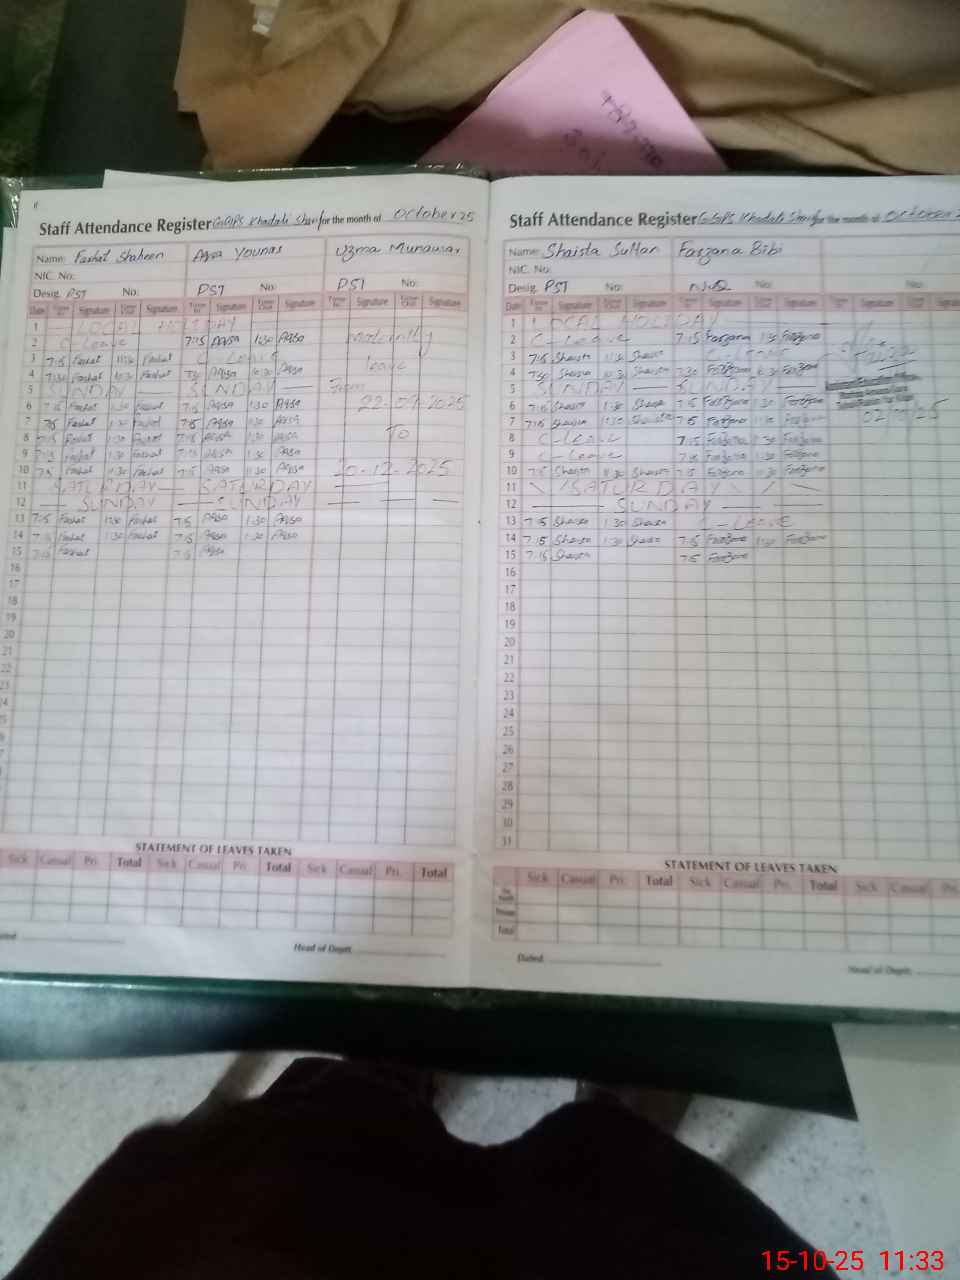 Staff Attendance Register GGPS Khadali Sharif for the month of October 25
Name: Farhat Shaheen Aqsa Younas Uzma Munawar
NIC. No:
Desig. PST No: PST No: PST No:
Date Time In Signature Time Out Signature Time In Signature Time Out Signature Time In Signature Time Out Signature
1 LOCAL HOLIDAY
2 C-Leave 7:15 Aqsa 1:30 Aqsa Maternity
3 7:15 Farhat 11:30 Farhat C-Leave leave
4 7:30 Farhat 10:30 Farhat 7:30 Aqsa 10:30 Aqsa
5 SUNDAY — SUNDAY — From
6 7:15 Farhat 1:30 Farhat 7:15 Aqsa 1:30 Aqsa 22-09-2025
7 7:15 Farhat 1:30 Farhat 7:15 Aqsa 1:30 Aqsa
8 7:15 Farhat 1:30 Farhat 7:15 Aqsa 1:30 Aqsa To
9 7:15 Farhat 1:30 Farhat 7:15 Aqsa 1:30 Aqsa
10 7:15 Farhat 11:30 Farhat 7:15 Aqsa 11:30 Aqsa 20-12-2025
11 SATURDAY — SATURDAY
12 SUNDAY — SUNDAY
13 7:15 Farhat 1:30 Farhat 7:15 Aqsa 1:30 Aqsa
14 7:15 Farhat 1:30 Farhat 7:15 Aqsa 1:30 Aqsa
15 7:15 Farhat 7:15 Aqsa
16
17
18
19
20
21
22
23
24
STATEMENT OF LEAVES TAKEN
Sick Casual Pri. Total Sick Casual Pri. Total Sick Casual Pri. Total
Head of Deptt.
Staff Attendance Register GGPS Khadali Sharif for the month of October
Name: Shaista Sultan Farzana Bibi
NIC. No:
Desig. PST No: No: No:
Date Time In Signature Time Out Signature Time In Signature Time Out Signature Signature Signature
1 LOCAL HOLIDAY
2 C-Leave 7:15 Farzana 1:30 Farzana
3 7:15 Shaista 11:30 Shaista C-Leave
4 7:30 Shaista 10:30 Shaista 7:30 Farzana 10:30 Farzana
5 SUNDAY — SUNDAY —
6 7:15 Shaista 1:30 Shaista 7:15 Farzana 1:30 Farzana
7 7:15 Shaista 1:30 Shaista 7:15 Farzana 1:30 Farzana
8 C-Leave 7:15 Farzana 1:30 Farzana
9 C-Leave 7:15 Farzana 1:30 Farzana
10 7:15 Shaista 11:30 Shaista 7:15 Farzana 11:30 Farzana
11 SATURDAY
12 SUNDAY
13 7:15 Shaista 1:30 Shaista C-Leave
14 7:15 Shaista 1:30 Shaista 7:15 Farzana 1:30 Farzana
15 7:15 Shaista 7:15 Farzana
16
17
18
19
20
21
22
23
24
25
26
27
28
29
30
31
STATEMENT OF LEAVES TAKEN
Sick Casual Pri. Total Sick Casual Pri. Total Sick Casual Pri.
Total
Dated
Head of Deptt.
15-10-25 11:33